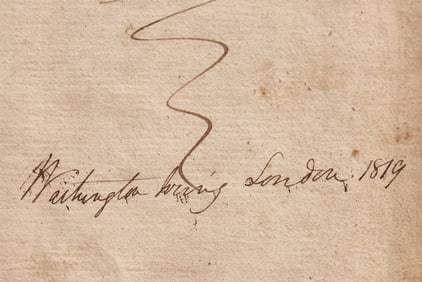 Washington Irving London. 1819